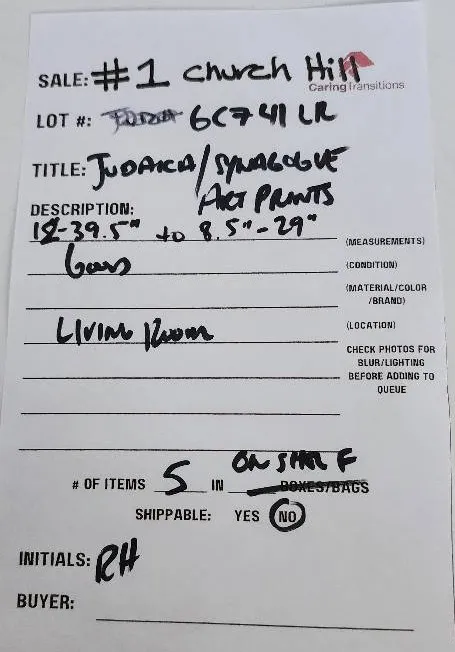 SALE: #1 Church Hill
CaringTransitions
LOT #: 6C741 LR
TITLE: JUDAICA/SYNAGOGUE
ART PRINTS
DESCRIPTION:
12-39.5" to 8.5"-29"
(MEASUREMENTS)
Good
(CONDITION)
(MATERIAL/COLOR
/BRAND)
LIVING ROOM
(LOCATION)
CHECK PHOTOS FOR
BLUR/LIGHTING
BEFORE ADDING TO
QUEUE
ON SHELF
# OF ITEMS 5 IN BOXES/BAGS
SHIPPABLE: YES NO
INITIALS: RH
BUYER: